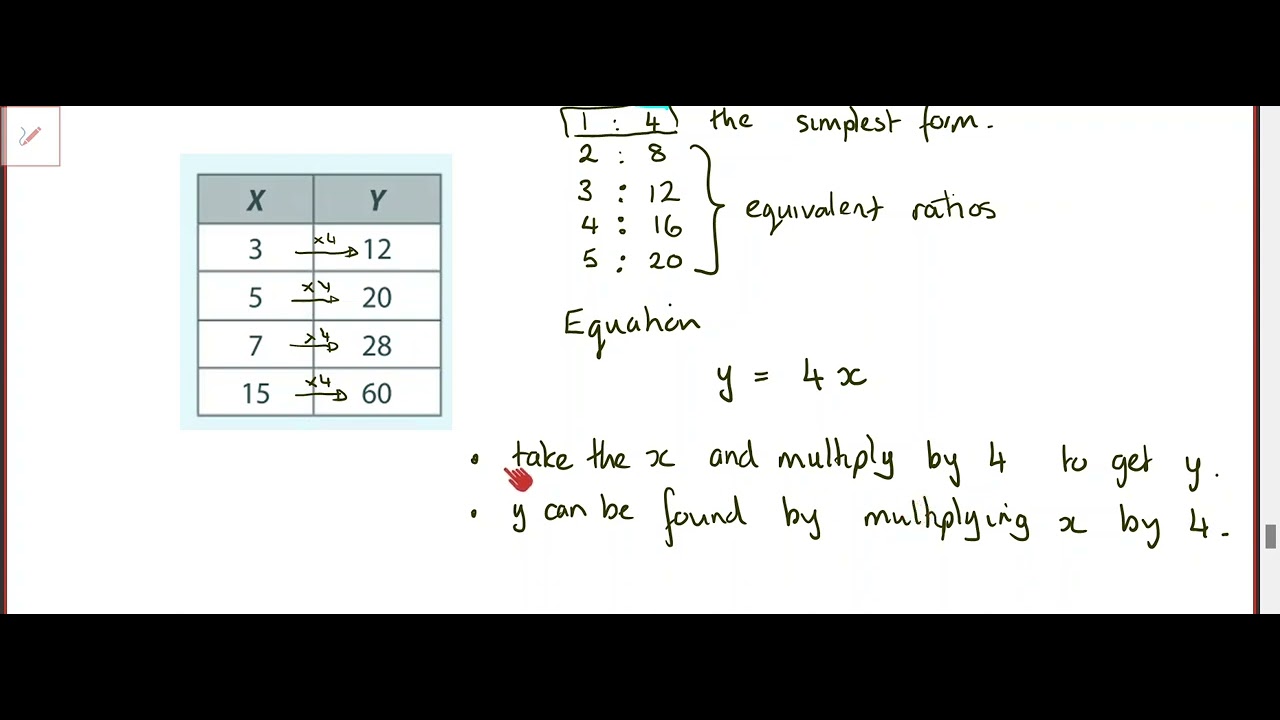 1 : 4 the simplest form.
2 : 8
3 : 12
4 : 16
5 : 20
equivalent ratios
X Y
3 x4 12
5 x4 20
7 x4 28
15 x4 60
Equation
y = 4x
• take the x and multiply by 4 to get y.
• y can be found by multiplying x by 4.